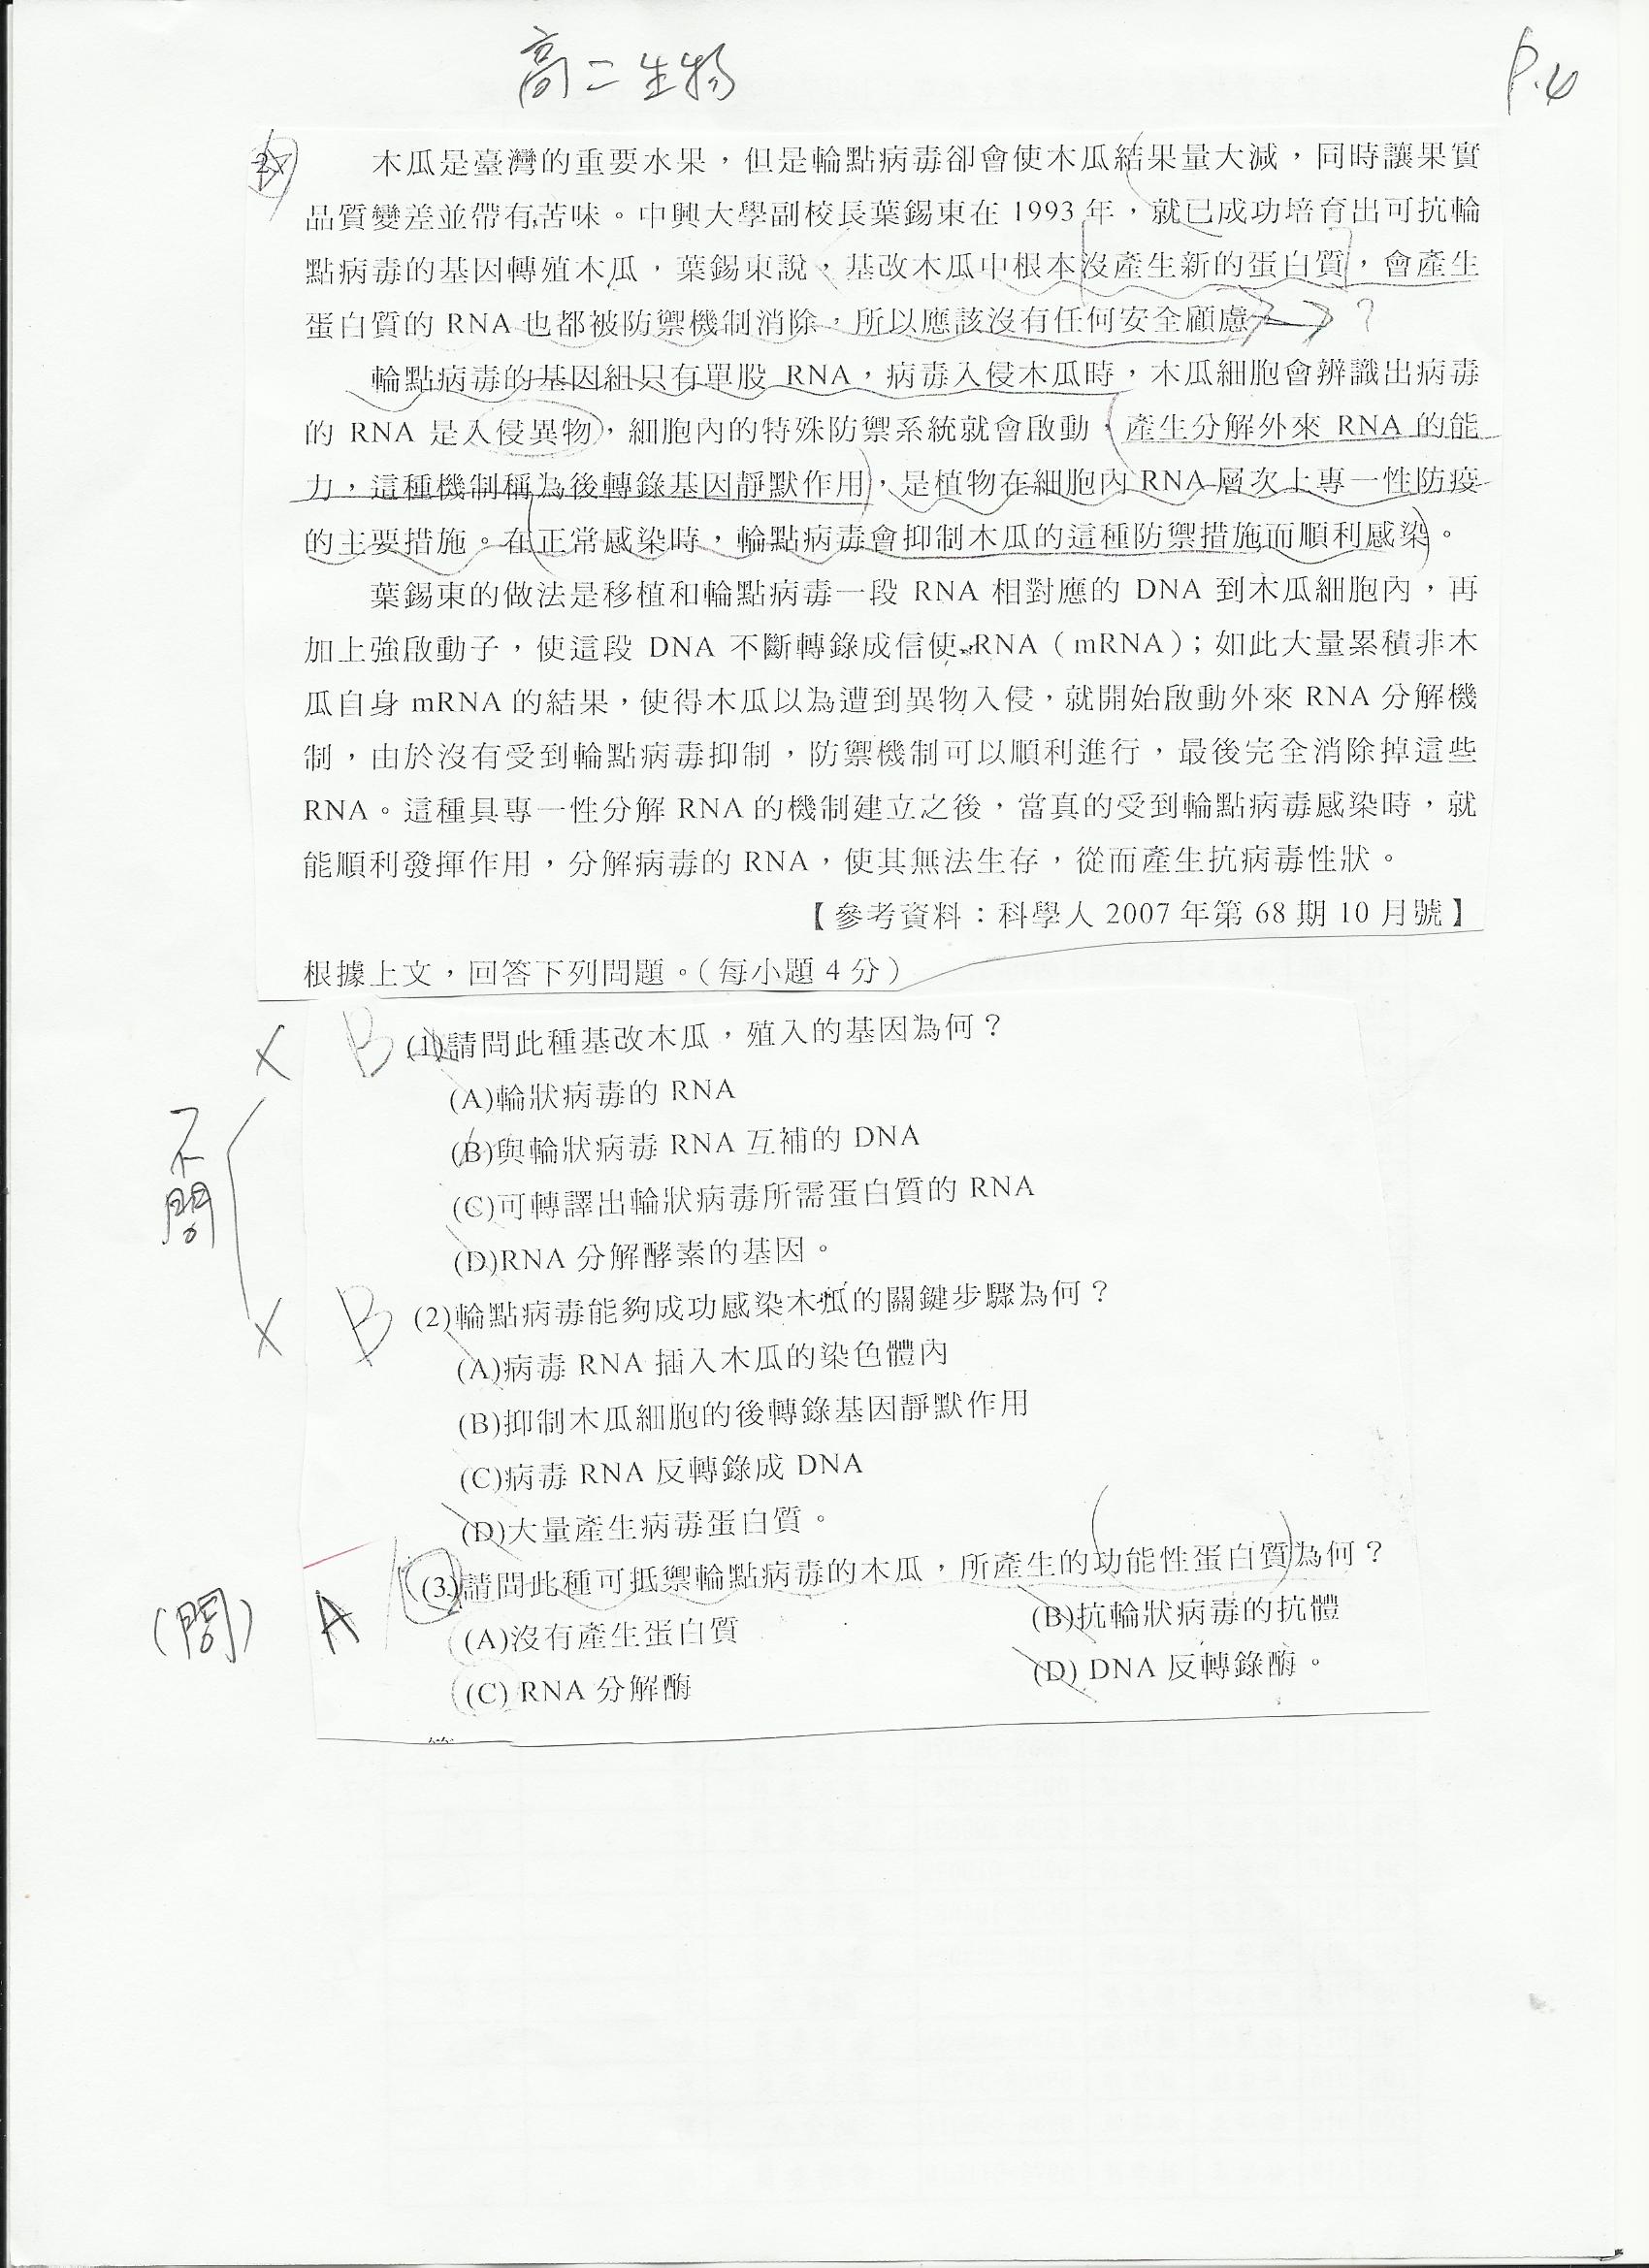 高二生物
P.4
木瓜是臺灣的重要水果，但是輪點病毒卻會使木瓜結果量大減，同時讓果實
品質變差並帶有苦味。中興大學副校長葉錫東在 1993 年，就已成功培育出可抗輪
點病毒的基因轉殖木瓜，葉錫東說，基改木瓜中根本沒產生新的蛋白質，會產生
蛋白質的 RNA 也都被防禦機制消除，所以應該沒有任何安全顧慮。
?
輪點病毒的基因組只有單股 RNA，病毒入侵木瓜時，木瓜細胞會辨識出病毒
的 RNA 是入侵異物，細胞內的特殊防禦系統就會啟動，產生分解外來 RNA 的能
力，這種機制稱為後轉錄基因靜默作用，是植物在細胞內 RNA 層次上專一性防疫
的主要措施。在正常感染時，輪點病毒會抑制木瓜的這種防禦措施而順利感染。
葉錫東的做法是移植和輪點病毒一段 RNA 相對應的 DNA 到木瓜細胞內，再
加上強啟動子，使這段 DNA 不斷轉錄成信使 RNA（mRNA）；如此大量累積非木
瓜自身 mRNA 的結果，使得木瓜以為遭到異物入侵，就開始啟動外來 RNA 分解機
制，由於沒有受到輪點病毒抑制，防禦機制可以順利進行，最後完全消除掉這些
RNA。這種具專一性分解 RNA 的機制建立之後，當真的受到輪點病毒感染時，就
能順利發揮作用，分解病毒的 RNA，使其無法生存，從而產生抗病毒性狀。
【參考資料：科學人 2007 年第 68 期 10 月號】
根據上文，回答下列問題。（每小題 4 分）
× B (1)請問此種基改木瓜，殖入的基因為何？
(A)輪狀病毒的 RNA
不問
(B)與輪狀病毒 RNA 互補的 DNA
(C)可轉譯出輪狀病毒所需蛋白質的 RNA
(D)RNA 分解酵素的基因。
× B (2)輪點病毒能夠成功感染木瓜的關鍵步驟為何？
(A)病毒 RNA 插入木瓜的染色體內
(B)抑制木瓜細胞的後轉錄基因靜默作用
(C)病毒 RNA 反轉錄成 DNA
(D)大量產生病毒蛋白質。
(問) A (3)請問此種可抵禦輪點病毒的木瓜，所產生的功能性蛋白質為何？
(A)沒有產生蛋白質 (B)抗輪狀病毒的抗體
(C) RNA 分解酶 (D) DNA 反轉錄酶。